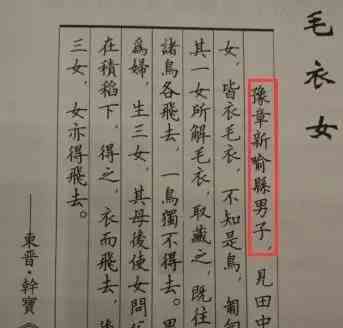 毛衣女
豫章新喻縣男子，見田中
女，皆衣毛衣，不知是鳥，匍匐
其一女所解毛衣，取藏之，既往
諸鳥各飛去，一鳥獨不得去。男
爲婦，生三女，其母後使女問父
在積稻下，得之，衣而飛去，後
三女，女亦得飛去。
——東晉·幹寶《